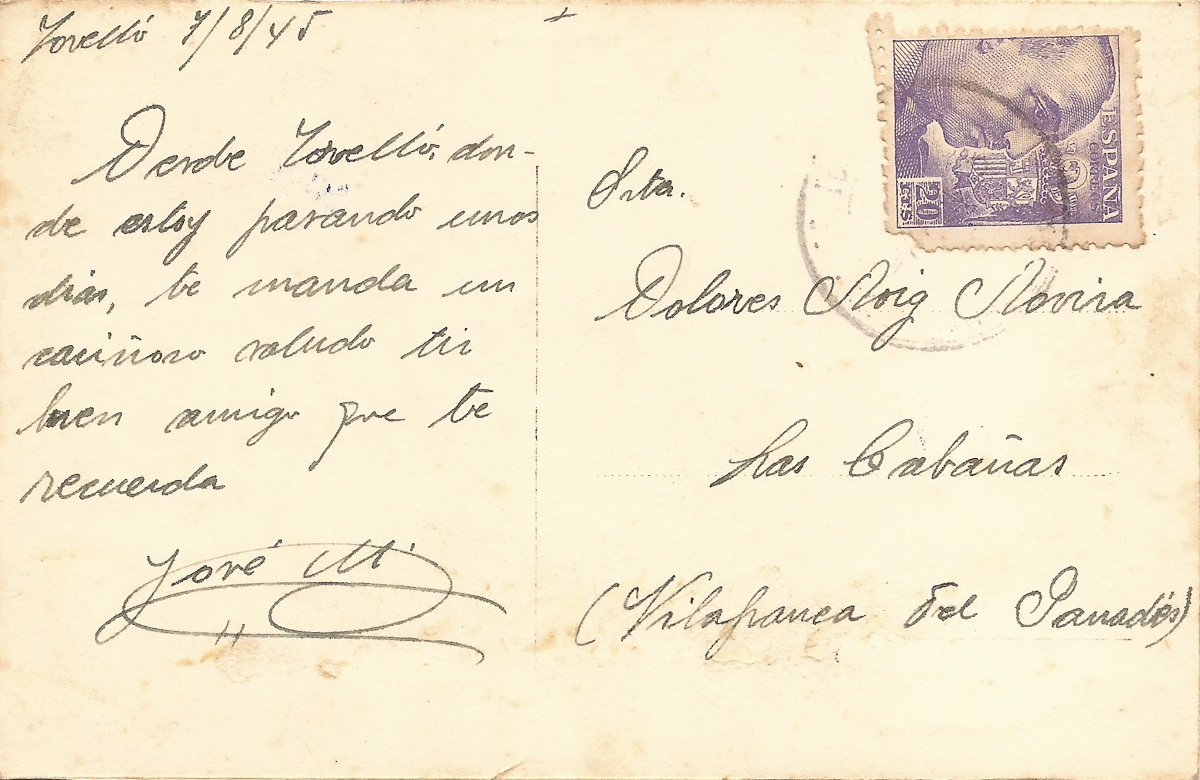 Torelló 7/8/45
Desde Torelló, don-
de estoy pasando unos
días, te manda un
cariñoso saludo tu
buen amigo que te
recuerda
José Mª
Srta.
Dolores Roig Rovira
Las Cabañas
(Vilafranca del Panadés)
ESPAÑA
CORREOS
20
CTS